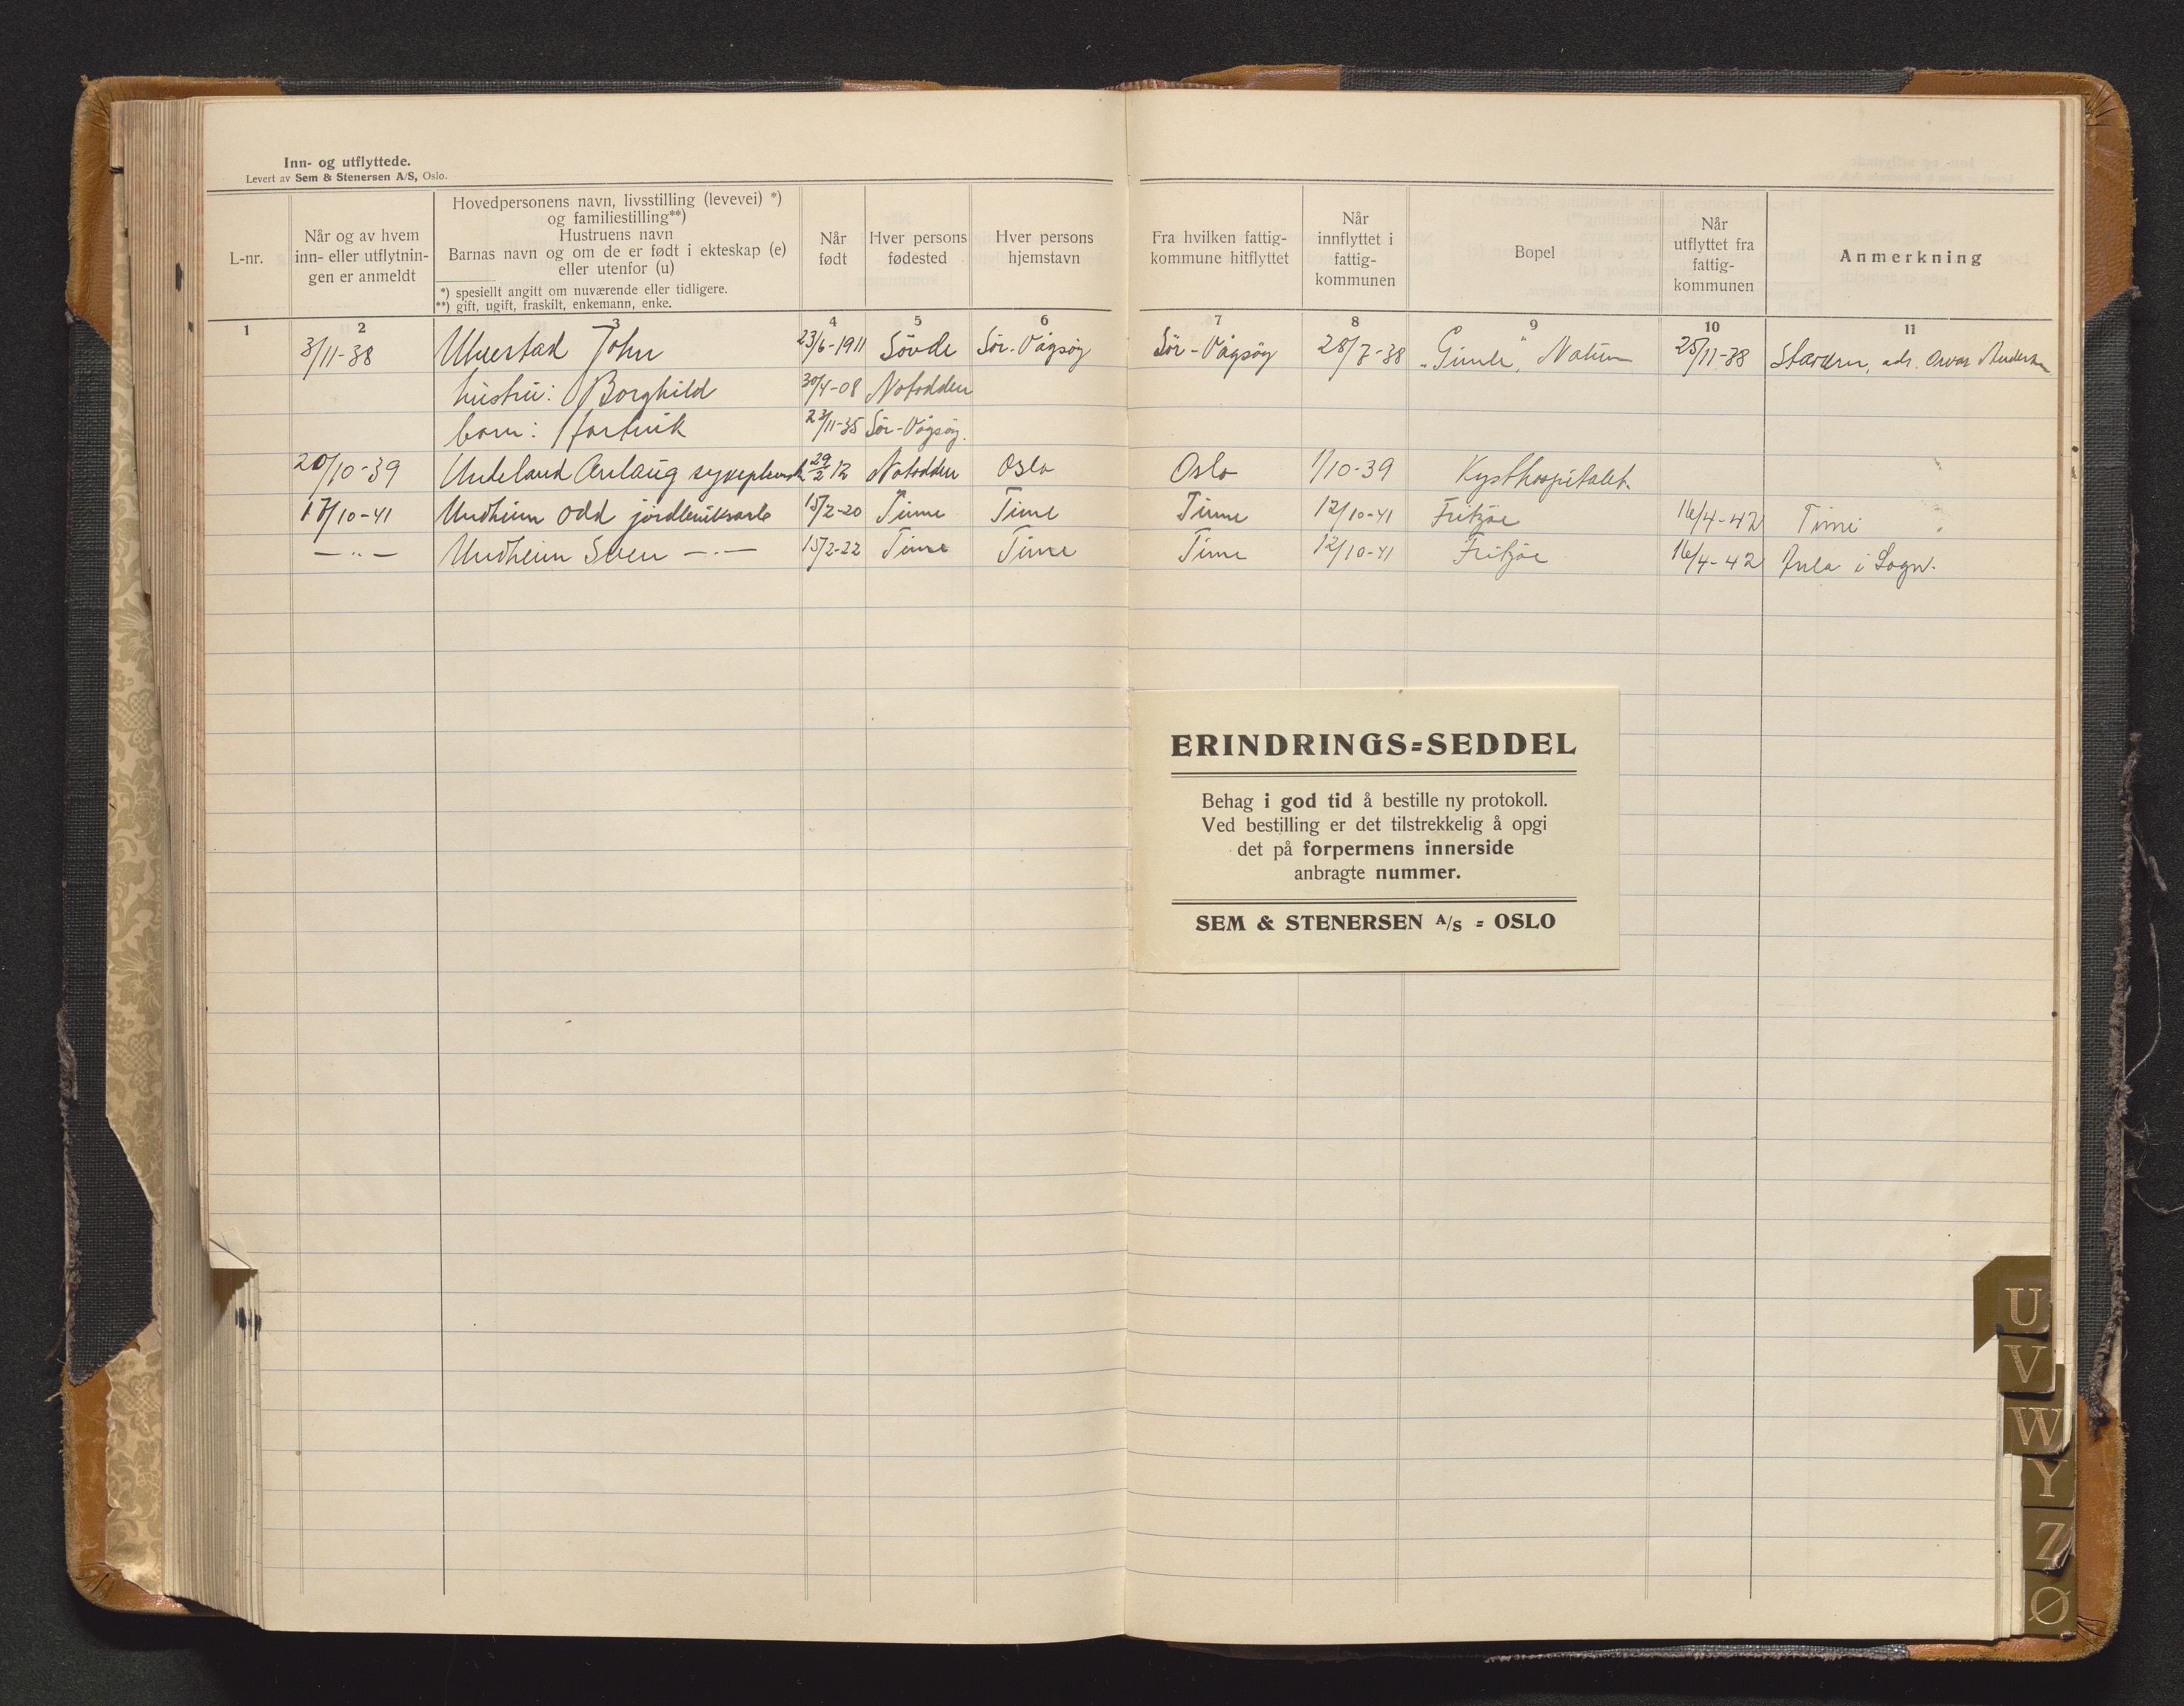 Inn- og utflyttede.
Levert av Sem & Stenersen A/S, Oslo.
L-nr.
Når og av hvem
inn- eller utflytnin-
gen er anmeldt
Hovedpersonens navn, livsstilling (levevei) *)
og familiestilling**)
Hustruens navn
Barnas navn og om de er født i ekteskap (e)
eller utenfor (u)
*) spesiellt angitt om nuværende eller tidligere.
**) gift, ugift, fraskilt, enkemann, enke.
Når
født
Hver persons
fødested
Hver persons
hjemstavn
Fra hvilken fattig-
kommune hitflyttet
Når
innflyttet i
fattig-
kommunen
Bopel
Når
utflyttet fra
fattig-
kommunen
Anmerkning
1 2 3 4 5 6 7 8 9 10 11
3/11-38 John 23/6-1911 Søvde Sør-Vågsøy Sør-Vågsøy 28/7-38 "Gimle", 25/11-38 Stavern, adr.
hustru: Borghild 30/4-08 Notodden
barn: 23/11-35 Sør-Vågsøy.
20/10-39 Undeland Anlaug 29/2 12 Notodden Oslo Oslo 1/10-39 Kysthospitalet.
17/10-41 Undheim Odd 15/2-20 Time Time Time 12/10-41 Fritzøe 16/4-42 Time
— " — Undheim Sven — " — 15/2-22 Time Time Time 12/10-41 Fritzøe 16/4-42 i Sogn.
ERINDRINGS=SEDDEL
Behag i god tid å bestille ny protokoll.
Ved bestilling er det tilstrekkelig å opgi
det på forpermens innerside
anbragte nummer.
SEM & STENERSEN A/S = OSLO
U
V
W
Y
Z
Ø